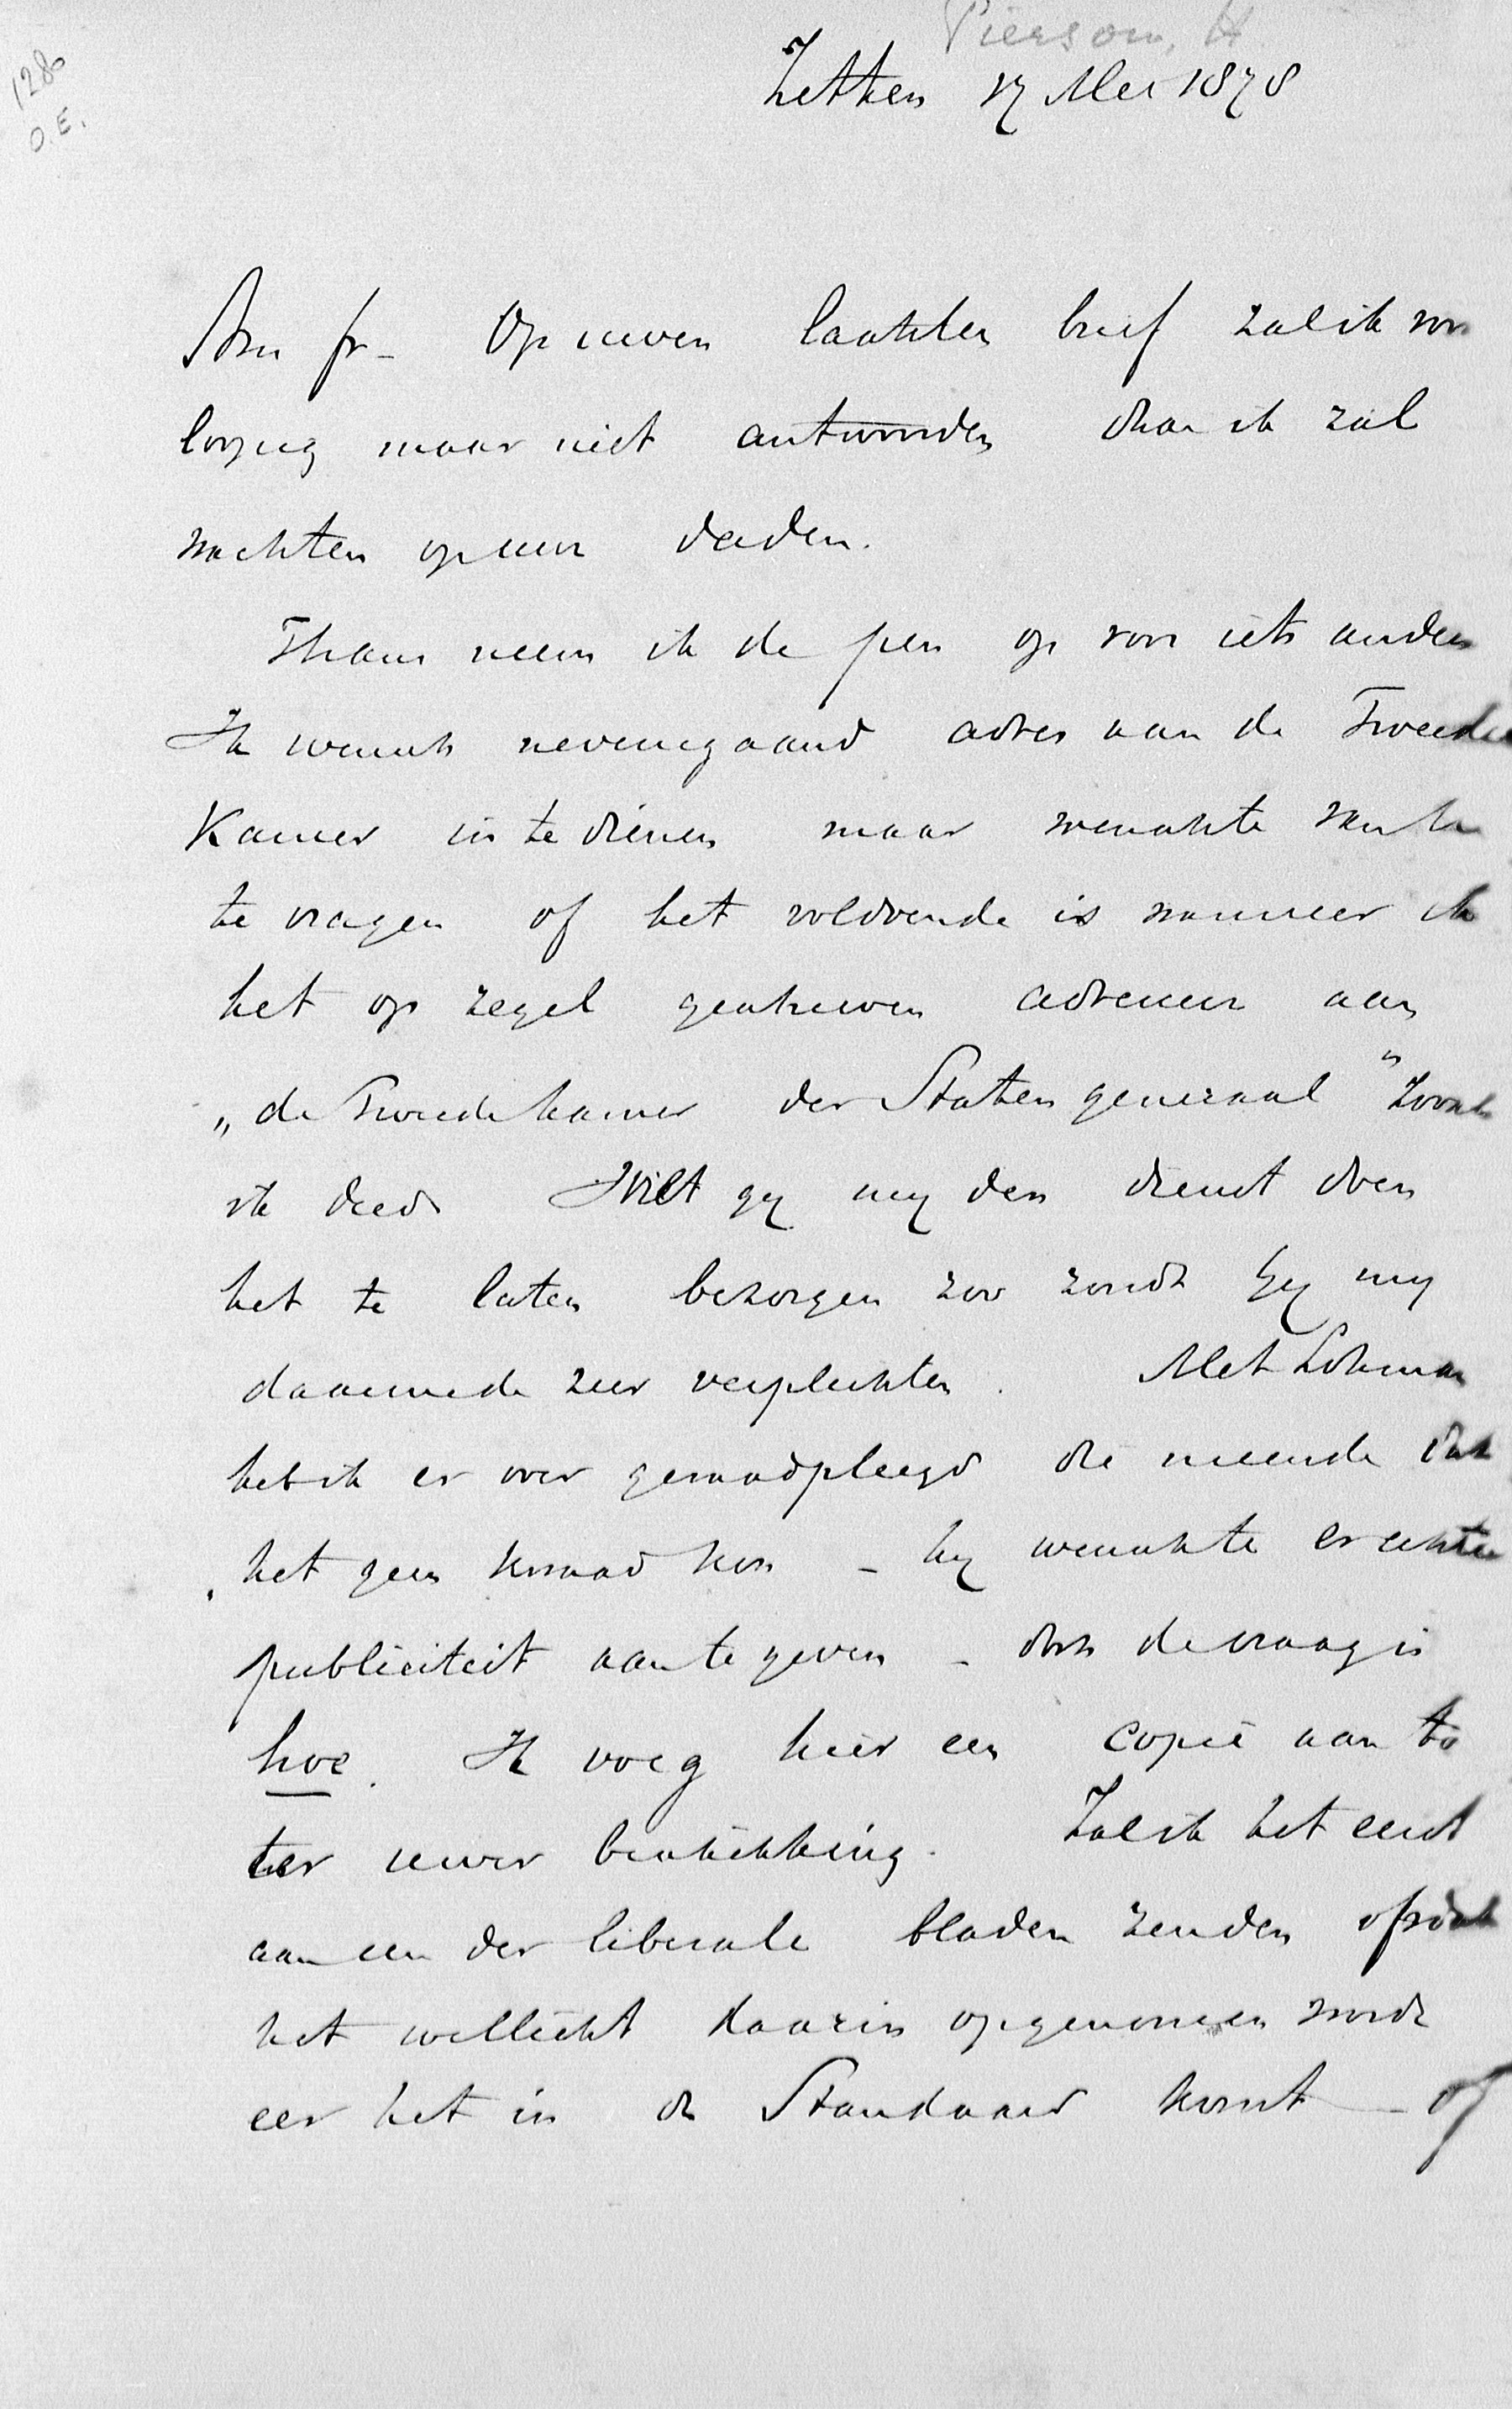 Pierson, H
1286
O.E.
Zetten 17 Mei 1878
Am fr - Op uwen laatsten brief zal ik voor
loopig maar niet antwoorden doch ik zal
wachten op uw daden.
Thans neem ik de pen op voor iets anders
Ik wensch nevensgaand adres aan de Tweede
Kamer in te dienen maar wenschte van u
te vragen of het voldoende is wanneer ik
het op zegel geschreven adresseer aan
„de Tweede kamer der Staten generaal" zooals
ik deed. Wilt gij mij den dienst doen
het te laten bezorgen zoo zoudt Gij mij
daarmede zeer verplichten. Met Lohman
heb ik er over geraadpleegd die meende dat
het geen kwaad kon - hij wenschte er echter
publiciteit aan te geven - doch de vraag is
hoe. Ik voeg hier een copie aan toe
ter uwer beschikking. Zal ik het eerst
aan een der liberale bladen zenden opdat
het wellicht daarin opgenomen wordt
eer het in de Standaard komt - of